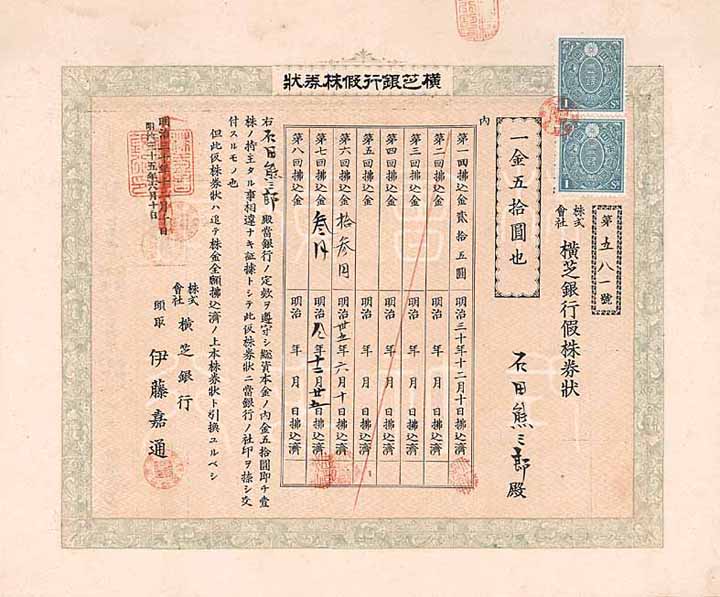 横芝銀行假株券狀
第五八一號
株式會社 横芝銀行假株券狀
石田熊三郎殿
一金五拾圓也
内
第一回拂込金 貳拾五圓 明治三十年十二月十日拂込濟
第二回拂込金 明治 年 月 日拂込濟
第三回拂込金 明治 年 月 日拂込濟
第四回拂込金 明治 年 月 日拂込濟
第五回拂込金 明治 年 月 日拂込濟
第六回拂込金 拾叁円 明治卅五年六月十日拂込濟
第七回拂込金 叁円 明治 年十二月 日拂込濟
第八回拂込金 明治 年 月 日拂込濟
右石田熊三郎殿當銀行ノ定欵ヲ遵守シ總資本金ノ内金五拾圓即チ壹
株ノ持主タル事相違ナキ証據トシテ此仮株券狀ニ當銀行ノ社印ヲ捺シ交
付スルモノ也
但此仮株券狀ハ追テ株金全額拂込濟ノ上本株券狀ト引換ユルベシ
明治三十年十二月十日
明治三十五年六月十日
株式會社 横芝銀行
頭取 伊藤嘉通
1 Sⁿ
1 Sⁿ